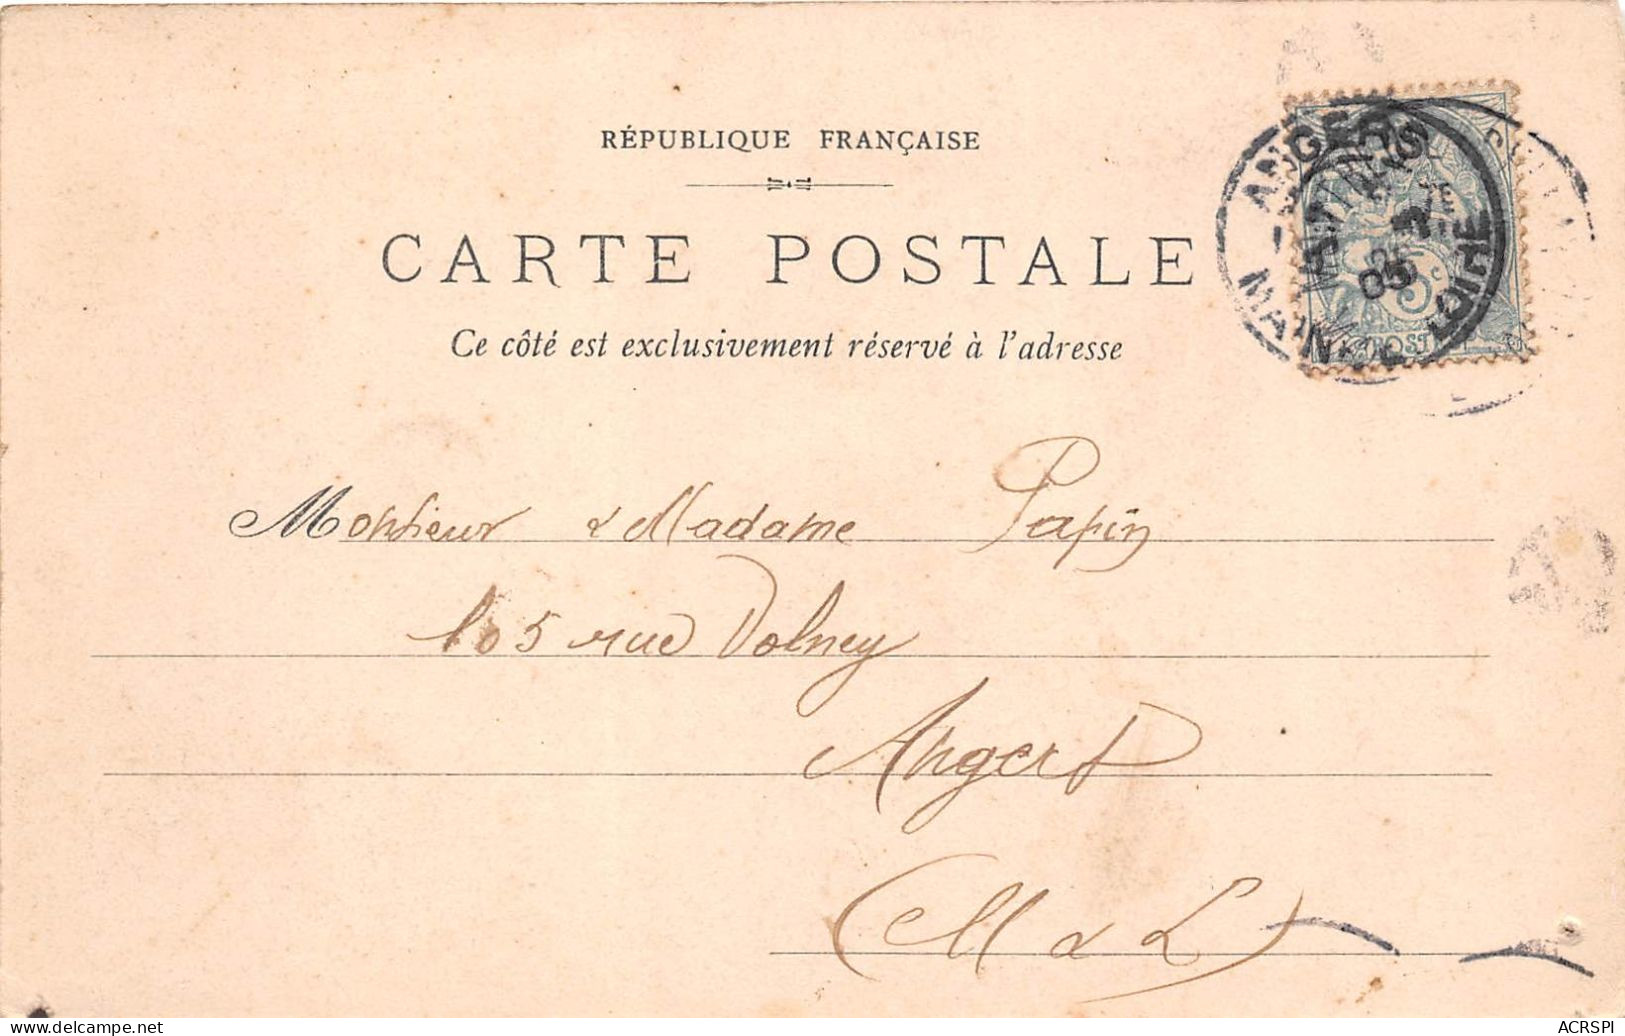 RÉPUBLIQUE FRANÇAISE
CARTE POSTALE
Ce côté est exclusivement réservé à l'adresse
ANGERS
05
MAINE
LOIRE
5
POSTES
Monsieur & Madame Papin
105 rue Volney
Angers
(M & L)
www.delcampe.net
ACRSPI